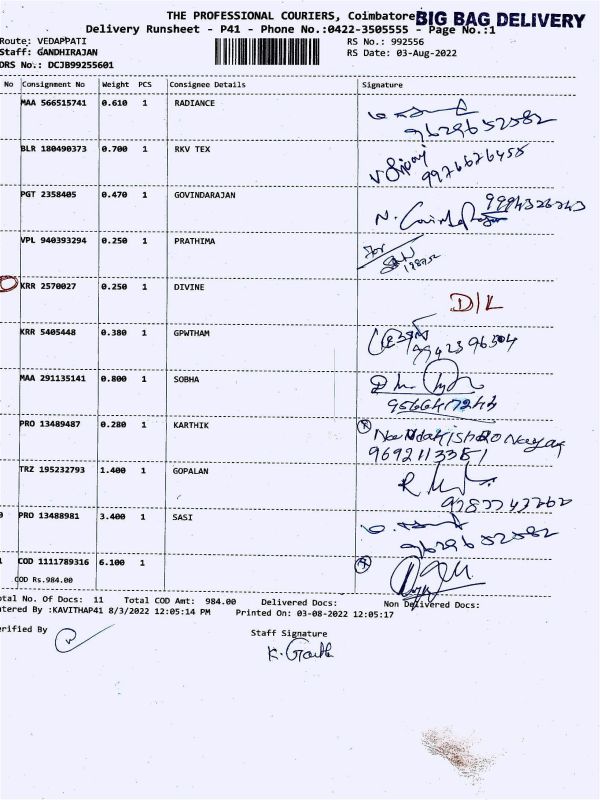 THE PROFESSIONAL COURIERS, Coimbatore BIG BAG DELIVERY
Delivery Runsheet - P41 - Phone No.:0422-3505555 - Page No.:1
Route: VEDAPPATI RS No.: 992556
Staff: GANDHIRAJAN RS Date: 03-Aug-2022
DRS No.: DCJB99255601
No Consignment No Weight PCS Consignee Details Signature
MAA 566515741 0.610 1 RADIANCE
9629652582
BLR 180490373 0.700 1 RKV TEX
9976626455
PGT 2358405 0.470 1 GOVINDARAJAN
N. Govindarajan
VPL 940393294 0.250 1 PRATHIMA
For
KRR 2570027 0.250 1 DIVINE
D/L
KRR 5405448 0.380 1 GPWTHAM
9942396304
MAA 291135141 0.800 1 SOBHA
PRO 13489487 0.280 1 KARTHIK
Nandakishoro Nayak
9692113381
TRZ 195232793 1.400 1 GOPALAN
PRO 13488981 3.400 1 SASI
9629652582
COD 1111789316 6.100 1
COD Rs.984.00
otal No. Of Docs: 11 Total COD Amt: 984.00 Delivered Docs: Non Delivered Docs:
ntered By :KAVITHAP41 8/3/2022 12:05:14 PM Printed On: 03-08-2022 12:05:17
erified By Staff Signature